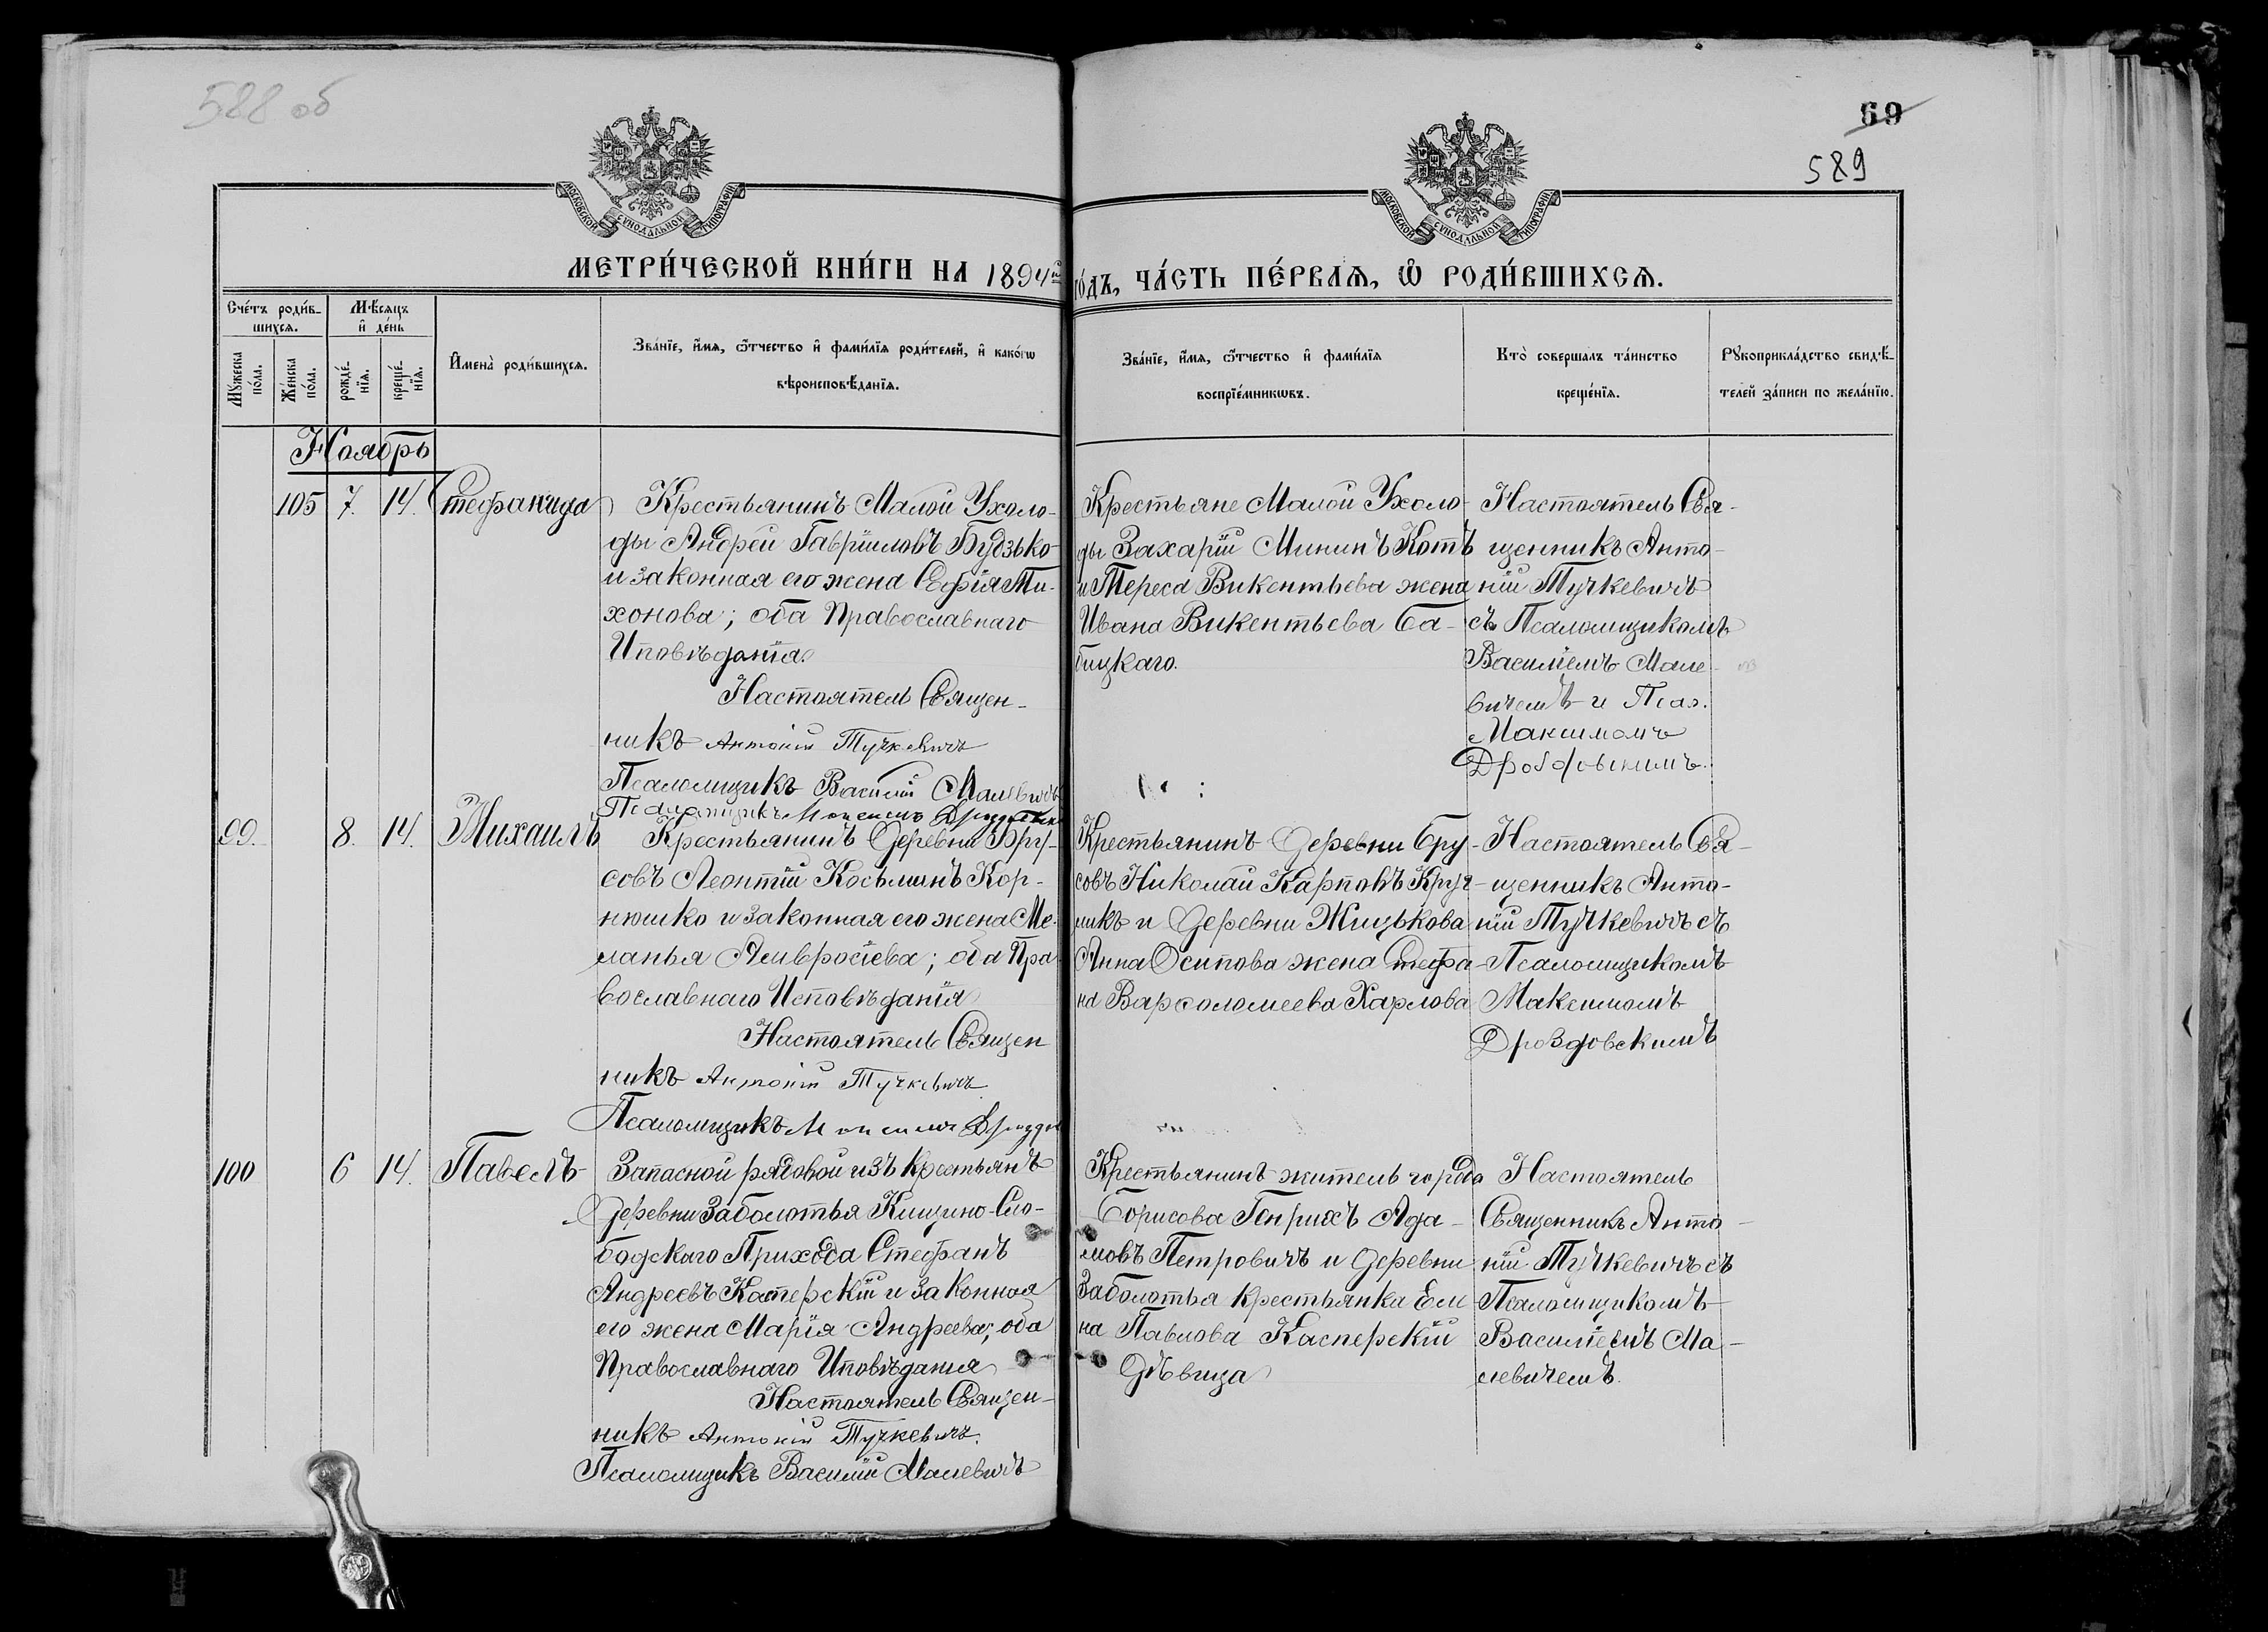 588 об
69
589
МОСКОВСКОЙ СѴНОДАЛЬНОЙ ТИПОГРАФІИ
МОСКОВСКОЙ СѴНОДАЛЬНОЙ ТИПОГРАФІИ
МЕТРИ́ЧЕСКОЙ КНИ́ГИ НА 1894й
го́дъ, ЧА́СТЬ ПЕ́РВАѦ, Ѡ҆ РОДИ́ВШИХСѦ.
Сче́тъ роди́в-
шихсѧ.
Мꙋжеска
по́ла.
Же́нска
по́ла.
Мѣ́сѧцъ
и҆ де́нь
рожде́-
нїѧ.
креще́-
нїѧ.
И҆мена̀ роди́вшихсѧ.
Зва́нїе, и҆́мѧ, ѻ҆́тчество и҆ фами́лїѧ роди́телей, и҆ како́гѡ
вѣроисповѣ́данїѧ.
Зва́нїе, и҆́мѧ, ѻ҆́тчество и҆ фами́лїѧ
воспрїе́мникѡвъ.
Кто̀ соверша́лъ та́инство
креще́нїѧ.
Рꙋкоприкла́дство свидѣ́-
телей за́писи по жела́нїю.
Ноябрь
105 7. 14. Стефанида
Крестьянинъ Малой Ухоло-
ды Андрей Гавріиловъ Будзько
и законная его жена Софія Ти-
хонова; оба Православнаго
Иповѣданія.
Настоятель Священ-
никъ Антоній Тучкевичъ
Псаломщикъ Василій Малевичъ
Псаломщикъ Максимъ
Крестьяне Малой Ухоло-
ды Захарій Мининъ Котъ
и Тереса Викентьева жена
Ивана Викентьева Ба-
бицкаго.
Настоятель Свя-
щенникъ Анто-
ній Тучкевичъ
съ Псаломщикомъ
Василіемъ Мале-
вичемъ и Псал.
Максимомъ
Дроздовскимъ.
99. 8. 14. Михаилъ
Крестьянинъ Деревни Бру-
совъ Леонтій Косьминъ Кор-
нюшко и законная его жена Ме-
ланья Амвросіева; оба Пра-
вославнаго Исповѣданія
Настоятель Священ
никъ Антоній Тучкевичъ
Псаломщикъ Максимъ
Крестьянинъ Деревни Бру-
совъ Николай Карповъ Круч-
никъ и Деревни Жицькова
Анна Осипова жена Стефа-
на Варфоломеева Харлова
Настоятель Свя-
щенникъ Анто-
ній Тучкевичъ съ
Псаломщикомъ
Максимомъ
Дроздовскимъ
100 6 14. Павелъ
Запасной рядовой изъ крестьянъ
Деревни Заболотья Кищино-Сло-
бодскаго Прихода Стефанъ
Андреевъ Касперскій и законная
его жена Марія Андреева; оба
Православнаго Иповѣданія
Настоятель Священ-
никъ Антоній Тучкевичъ.
Псаломщикъ Василій Малевичъ
Крестьянинъ житель города
Борисова Генрихъ Ада-
мовъ Петровичъ и Деревни
Заболотья крестьянка Еле
на Павлова Касперскій
Дѣвица
Настоятель
Священникъ Анто-
ній Тучкевичъ съ
Псаломщикомъ
Василіемъ Ма-
левичемъ.